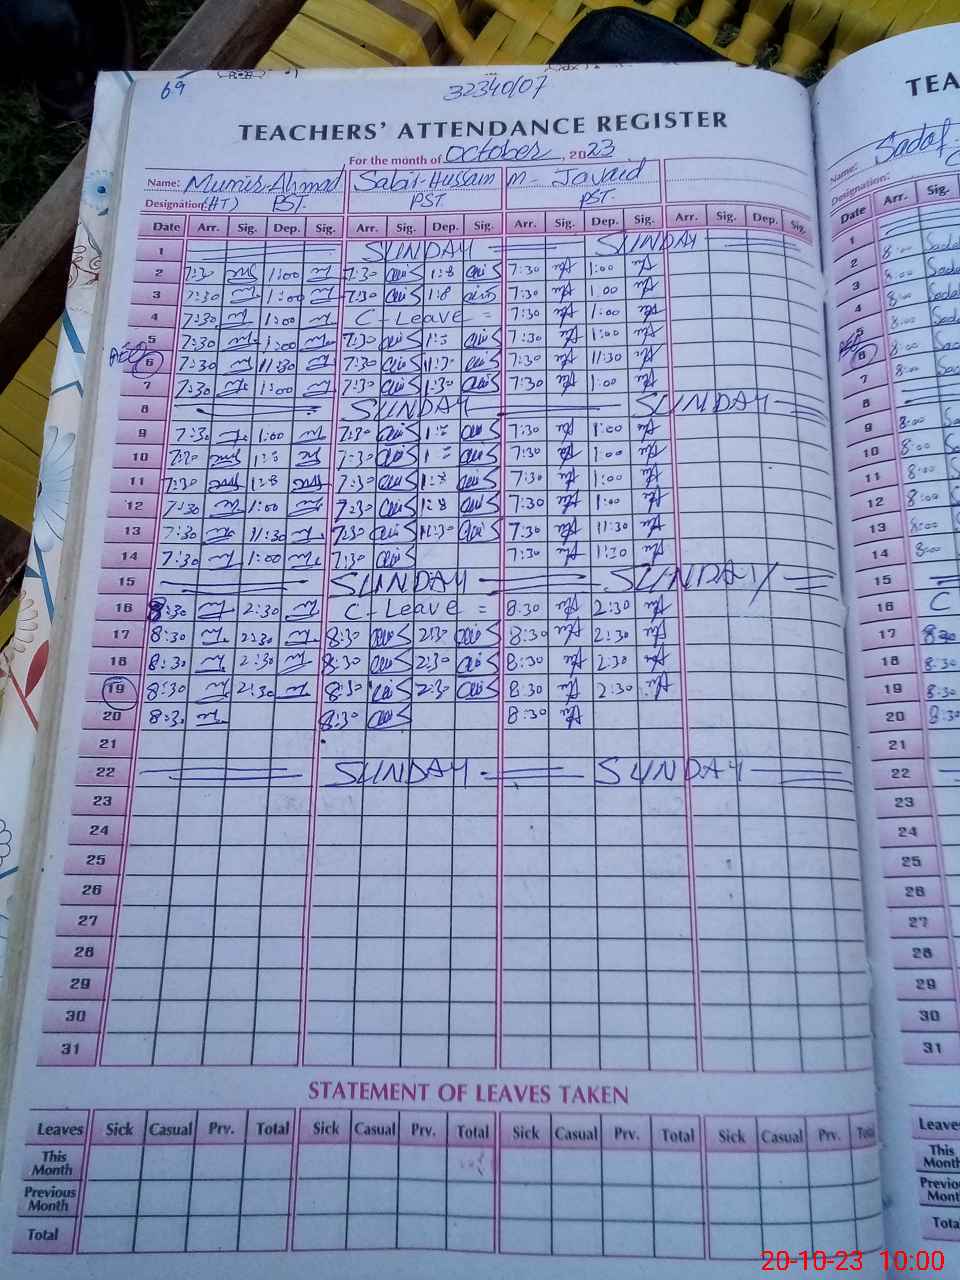 69
32340107
TEACHERS' ATTENDANCE REGISTER
For the month of October, 2023
Name: Munir Ahmad Sabir Hussain M. Javaid
Designation: (HT) PST. PST PST.
Date Arr. Sig. Dep. Sig. Arr. Sig. Dep. Sig. Arr. Sig. Dep. Sig. Arr. Sig. Dep. Sig.
1 SUNDAY SUNDAY
2 7:30 1:00 7:30 1:8 7:30 1:00
3 7:30 1:00 7:30 1:8 7:30 1:00
4 7:30 1:00 C-Leave = 7:30 1:00
5 7:30 1:00 7:30 7:30 1:00
6 7:30 11:30 7:30 11:30 7:30 11:30
7 7:30 1:00 7:30 1:30 7:30 1:00
8 SUNDAY SUNDAY
9 7:30 1:00 7:30 7:30 1:00
10 7:30 7:30 7:30 1:00
11 7:30 1:8 7:30 7:30 1:00
12 7:30 1:00 7:30 1:8 7:30 1:00
13 7:30 11:30 7:30 11:30 7:30 11:30
14 7:30 1:00 7:30 7:30
15 SUNDAY SUNDAY
16 8:30 2:30 C-Leave = 8:30 2:30
17 8:30 2:30 8:30 2:30 8:30 2:30
18 8:30 2:30 8:30 2:30 8:30 2:30
19 8:30 2:30 8:30 2:30 8:30 2:30
20 8:30 8:30 8:30
21
22 SUNDAY SUNDAY
23
24
25
26
27
28
29
30
31
STATEMENT OF LEAVES TAKEN
Leaves Sick Casual Prv. Total Sick Casual Prv. Total Sick Casual Prv. Total Sick Casual Prv. Total
This Month
Previous Month
Total
TEA
Name: Sadaf
Designation:
Date Arr. Sig.
1
2 8:00 Sadaf
3 8:00 Sadaf
4 8:00
5 8:00
6 8:00
7 8:00
8
9 8:00
10 8:00
11 8:00
12 8:00
13 8:00
14 8:00
15
16 C
17 8:30
18 8:30
19 8:30
20 8:30
21
22
23
24
25
26
27
28
29
30
31
Leaves
This Month
Total
20-10-23 10:00